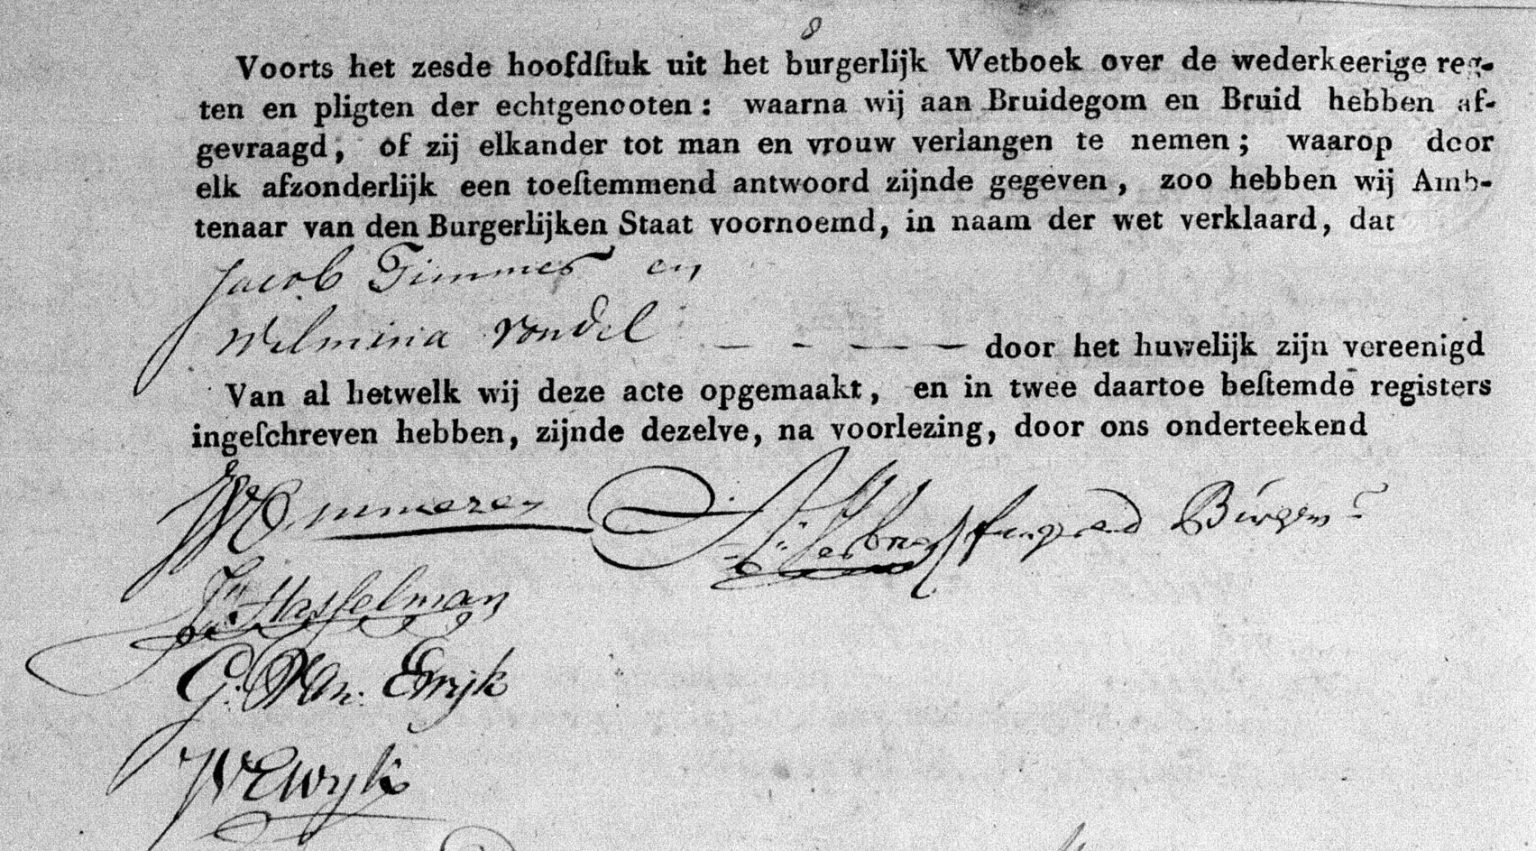 8
Voorts het zesde hoofdſtuk uit het burgerlijk Wetboek over de wederkeerige reg-
ten en pligten der echtgenooten: waarna wij aan Bruidegom en Bruid hebben af-
gevraagd, of zij elkander tot man en vrouw verlangen te nemen; waarop door
elk afzonderlijk een toeſtemmend antwoord zijnde gegeven, zoo hebben wij Amb-
tenaar van den Burgerlijken Staat voornoemd, in naam der wet verklaard, dat
Jacob Timmer en
Welmina Vondel - - - - - door het huwelijk zijn vereenigd
Van al hetwelk wij deze acte opgemaakt, en in twee daartoe beſtemde registers
ingeſchreven hebben, zijnde dezelve, na voorlezing, door ons onderteekend
fungerend Burgem
Jn Hasselman
G. Van. Ewijk
W Ewijk